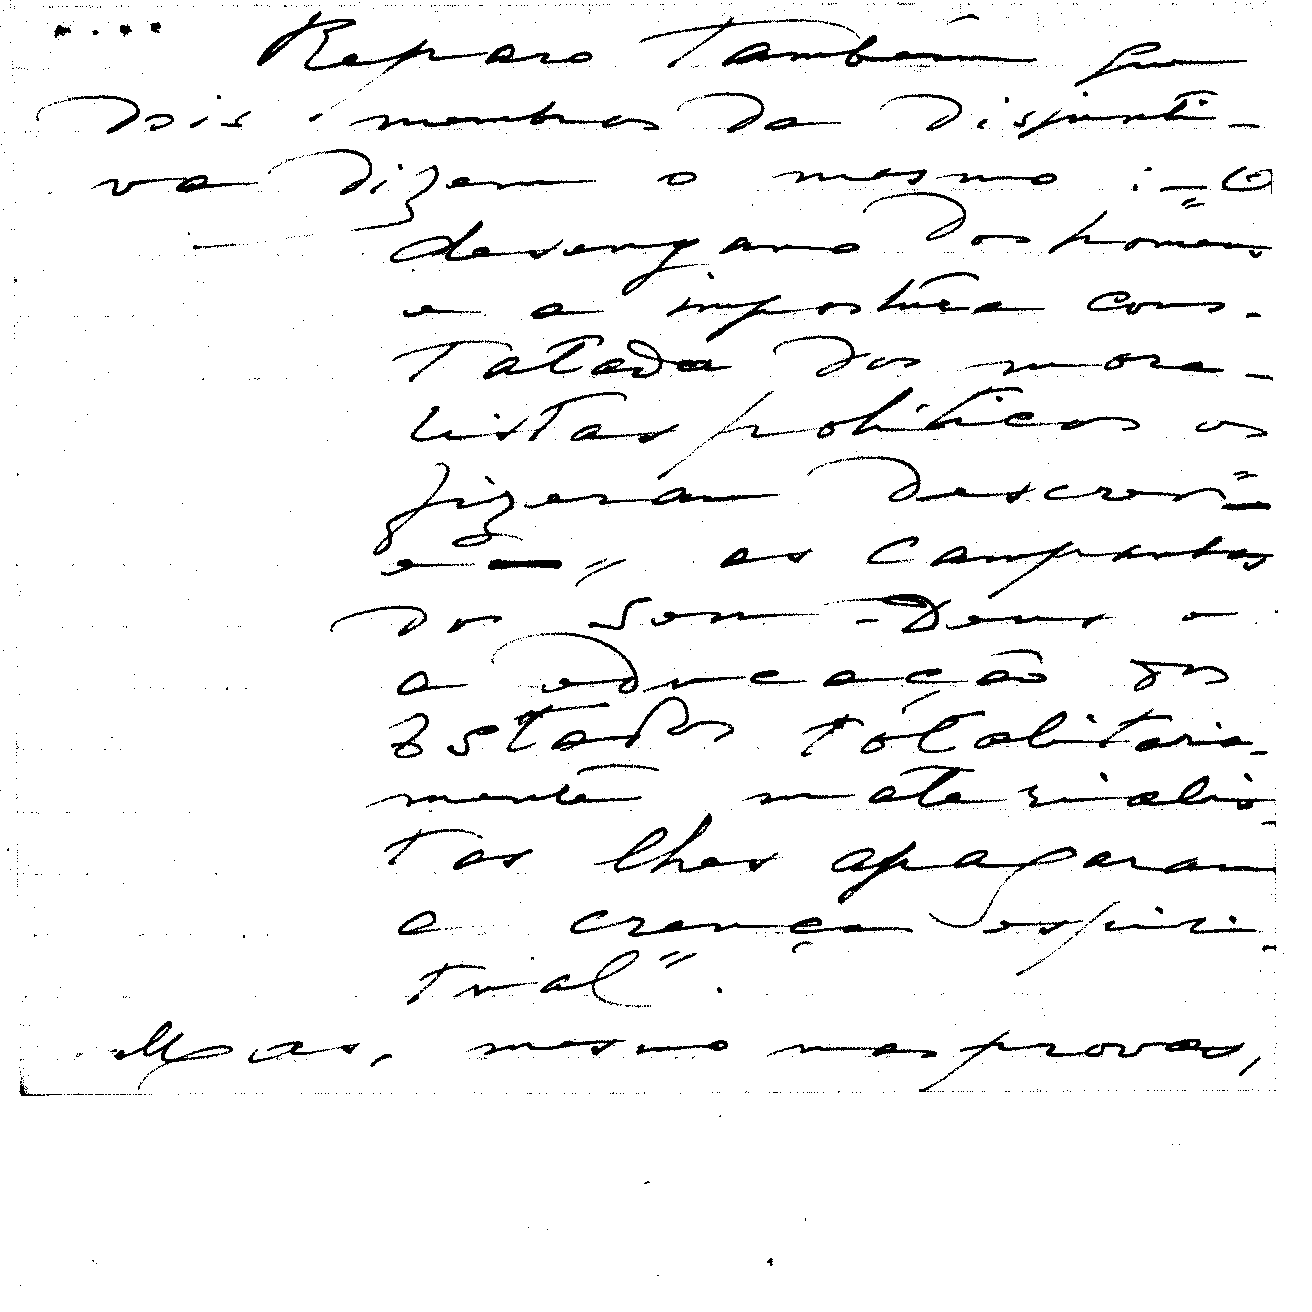 Reparo também que
dois membros da disjunti-
va dizem o mesmo: - O
desengano dos homens
e a impostura cons-
tatada dos mora-
listas políticos os
fizeram descrer"
e — " as campanhas
do Sem-Deus e
a educação dos
Estados totalitaria-
mente materialis-
tas lhes apagaram
a crença espiri-
tual".
Mas, mesmo nas provas,